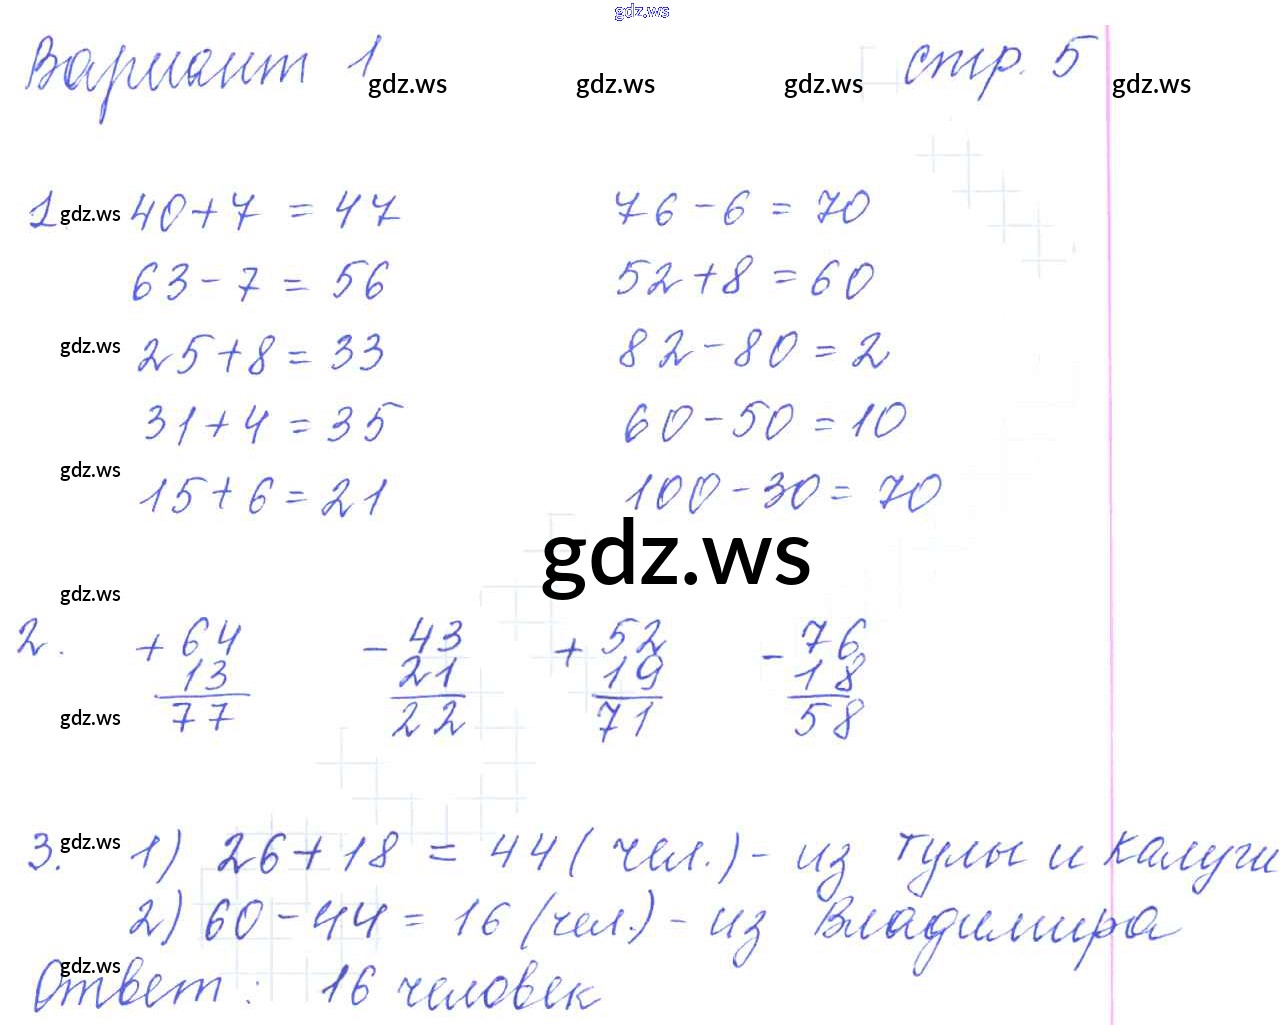 gdz.ws
Вариант 1 стр. 5
gdz.ws gdz.ws gdz.ws gdz.ws
1. gdz.ws 40+7 = 47 76-6 = 70
63-7 = 56 52+8 = 60
gdz.ws 25+8 = 33 82-80 = 2
31+4 = 35 60-50 = 10
gdz.ws 15+6 = 21 100-30 = 70
gdz.ws
gdz.ws
2. + 64 - 43 + 52 - 76
13 21 19 18
gdz.ws 77 22 71 58
3. gdz.ws 1) 26+18 = 44 (чел.) - из Тулы и Калуги
2) 60-44 = 16 (чел.) - из Владимира
gdz.ws
Ответ: 16 человек